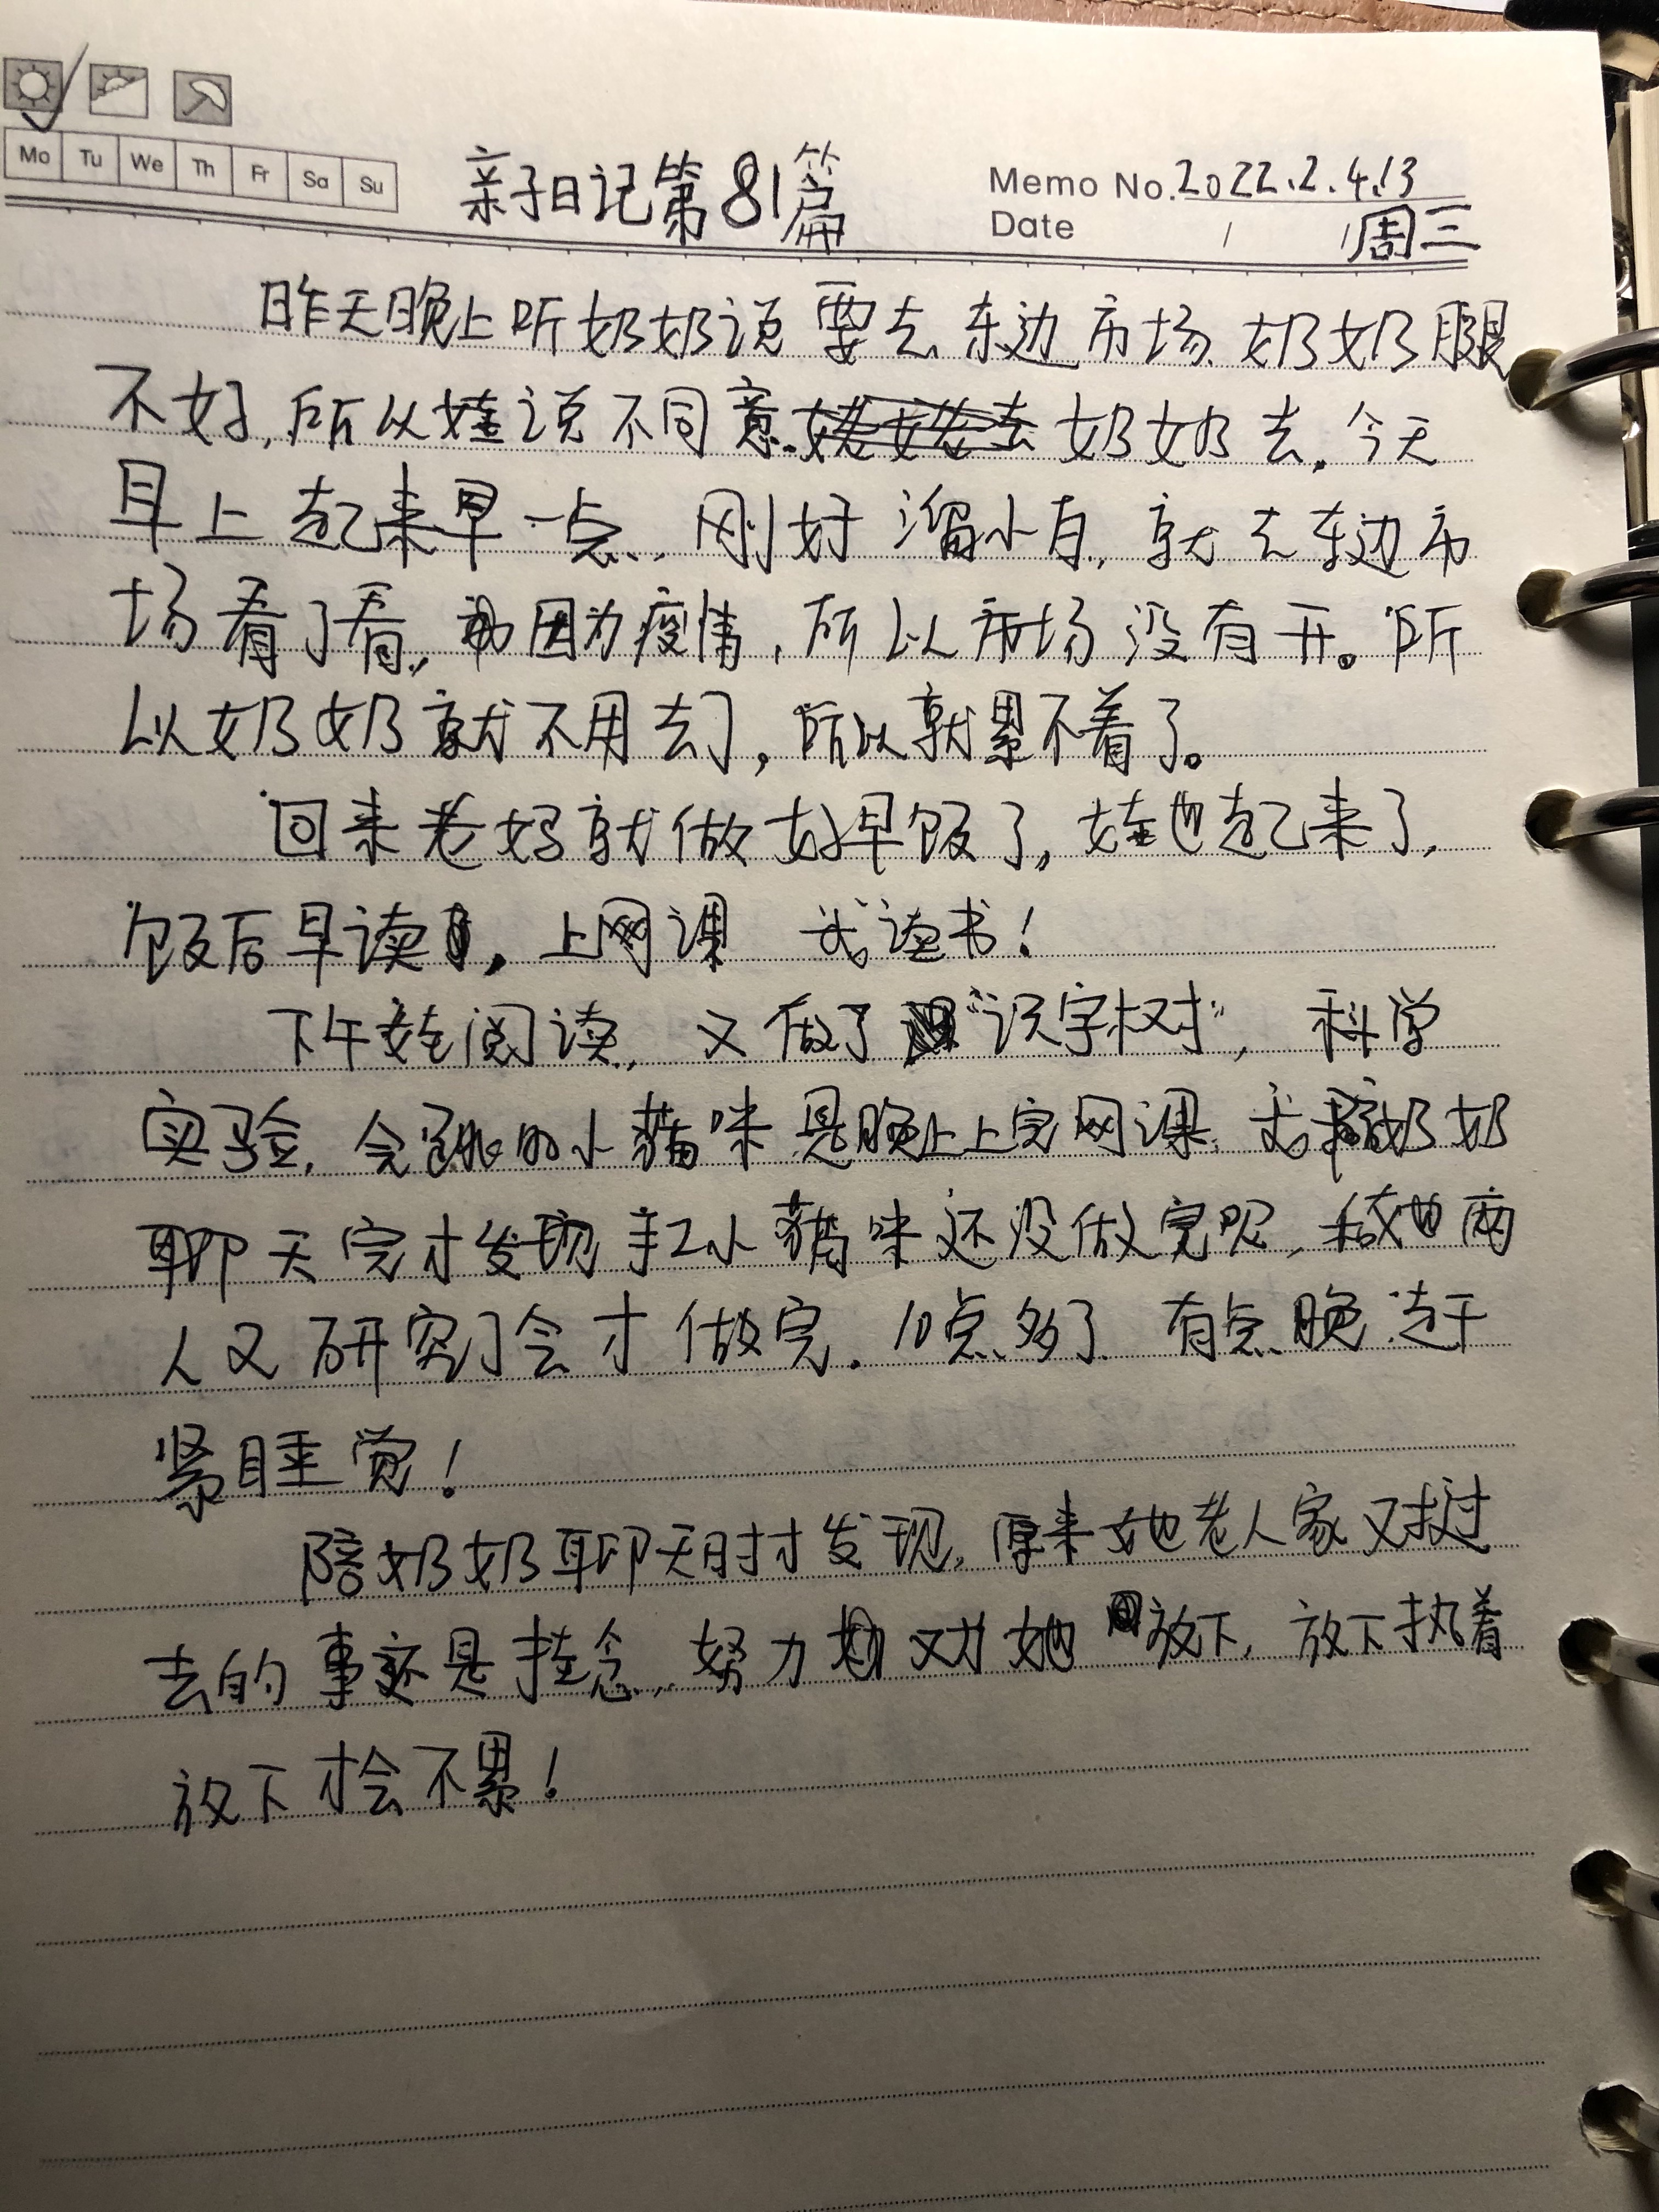 Mo Tu We Th Fr Sa Su
亲子日记第81篇
Memo No. 2022.2.4.13
Date / / 周三
昨天晚上听奶奶说要去东边市场.奶奶腿
不好,所以娃说不同意.奶奶去.今天
早上起来早一点.刚好溜小白,就去东边市
场看了看,因为疫情,所以市场没有开。所
以奶奶就不用去了,所以就累不着了。
回来老妈就做好早饭了,娃也起来了,
饭后早读,上网课 我读书!
下午娃阅读,又做了"识字树",科学
实验,会跳的小猫咪是晚上上完网课.我陪奶奶
聊天完才发现手工小猫咪还没做完呢,我她两
人又研究了会才做完.10点多了 有点晚 赶
紧睡觉!
陪奶奶聊天时才发现,原来她老人家又对过
去的事还是挂念,努力对她放下,放下执着
放下才会不累!